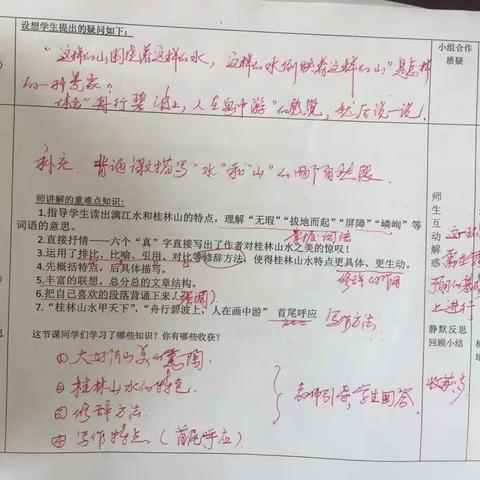 设想学生提出的疑问如下：
小组合作
质疑
“这样的山围绕着这样的水，这样的水倒映着这样的山”是怎样
的一种景象？
体会“舟行碧波上，人在画中游”的感觉，然后说一说！
补充：背诵课文描写“水”和“山”的两个自然段
师讲解的重难点知识：
1.指导学生读出漓江水和桂林山的特点，理解“无瑕”“拔地而起”“屏障”“嶙峋”等
词语的意思。
掌握词法
2.直接抒情——六个“真”字直接写出了作者对桂林山水之美的惊叹！
3.运用了排比、比喻、引用、对比等修辞方法，使得桂林山水特点更具体、更生动。
4.先概括特点，后具体描写。
修辞的作用
5.丰富的联想、总分总的文章结构。
6.把自己喜欢的段落背诵下来。
7.“桂林山水甲天下”，“舟行碧波上，人在画中游” 首尾呼应
写作方法
师
生
互
动
解
惑
上进行
这节课同学们学习了哪些知识？你有哪些收获？
静默反思
回顾小结
①大好河山美的熏陶
②桂林山水的特色
③修辞方法
④写作特点（首尾呼应）
教师引导，学生回答
收获多